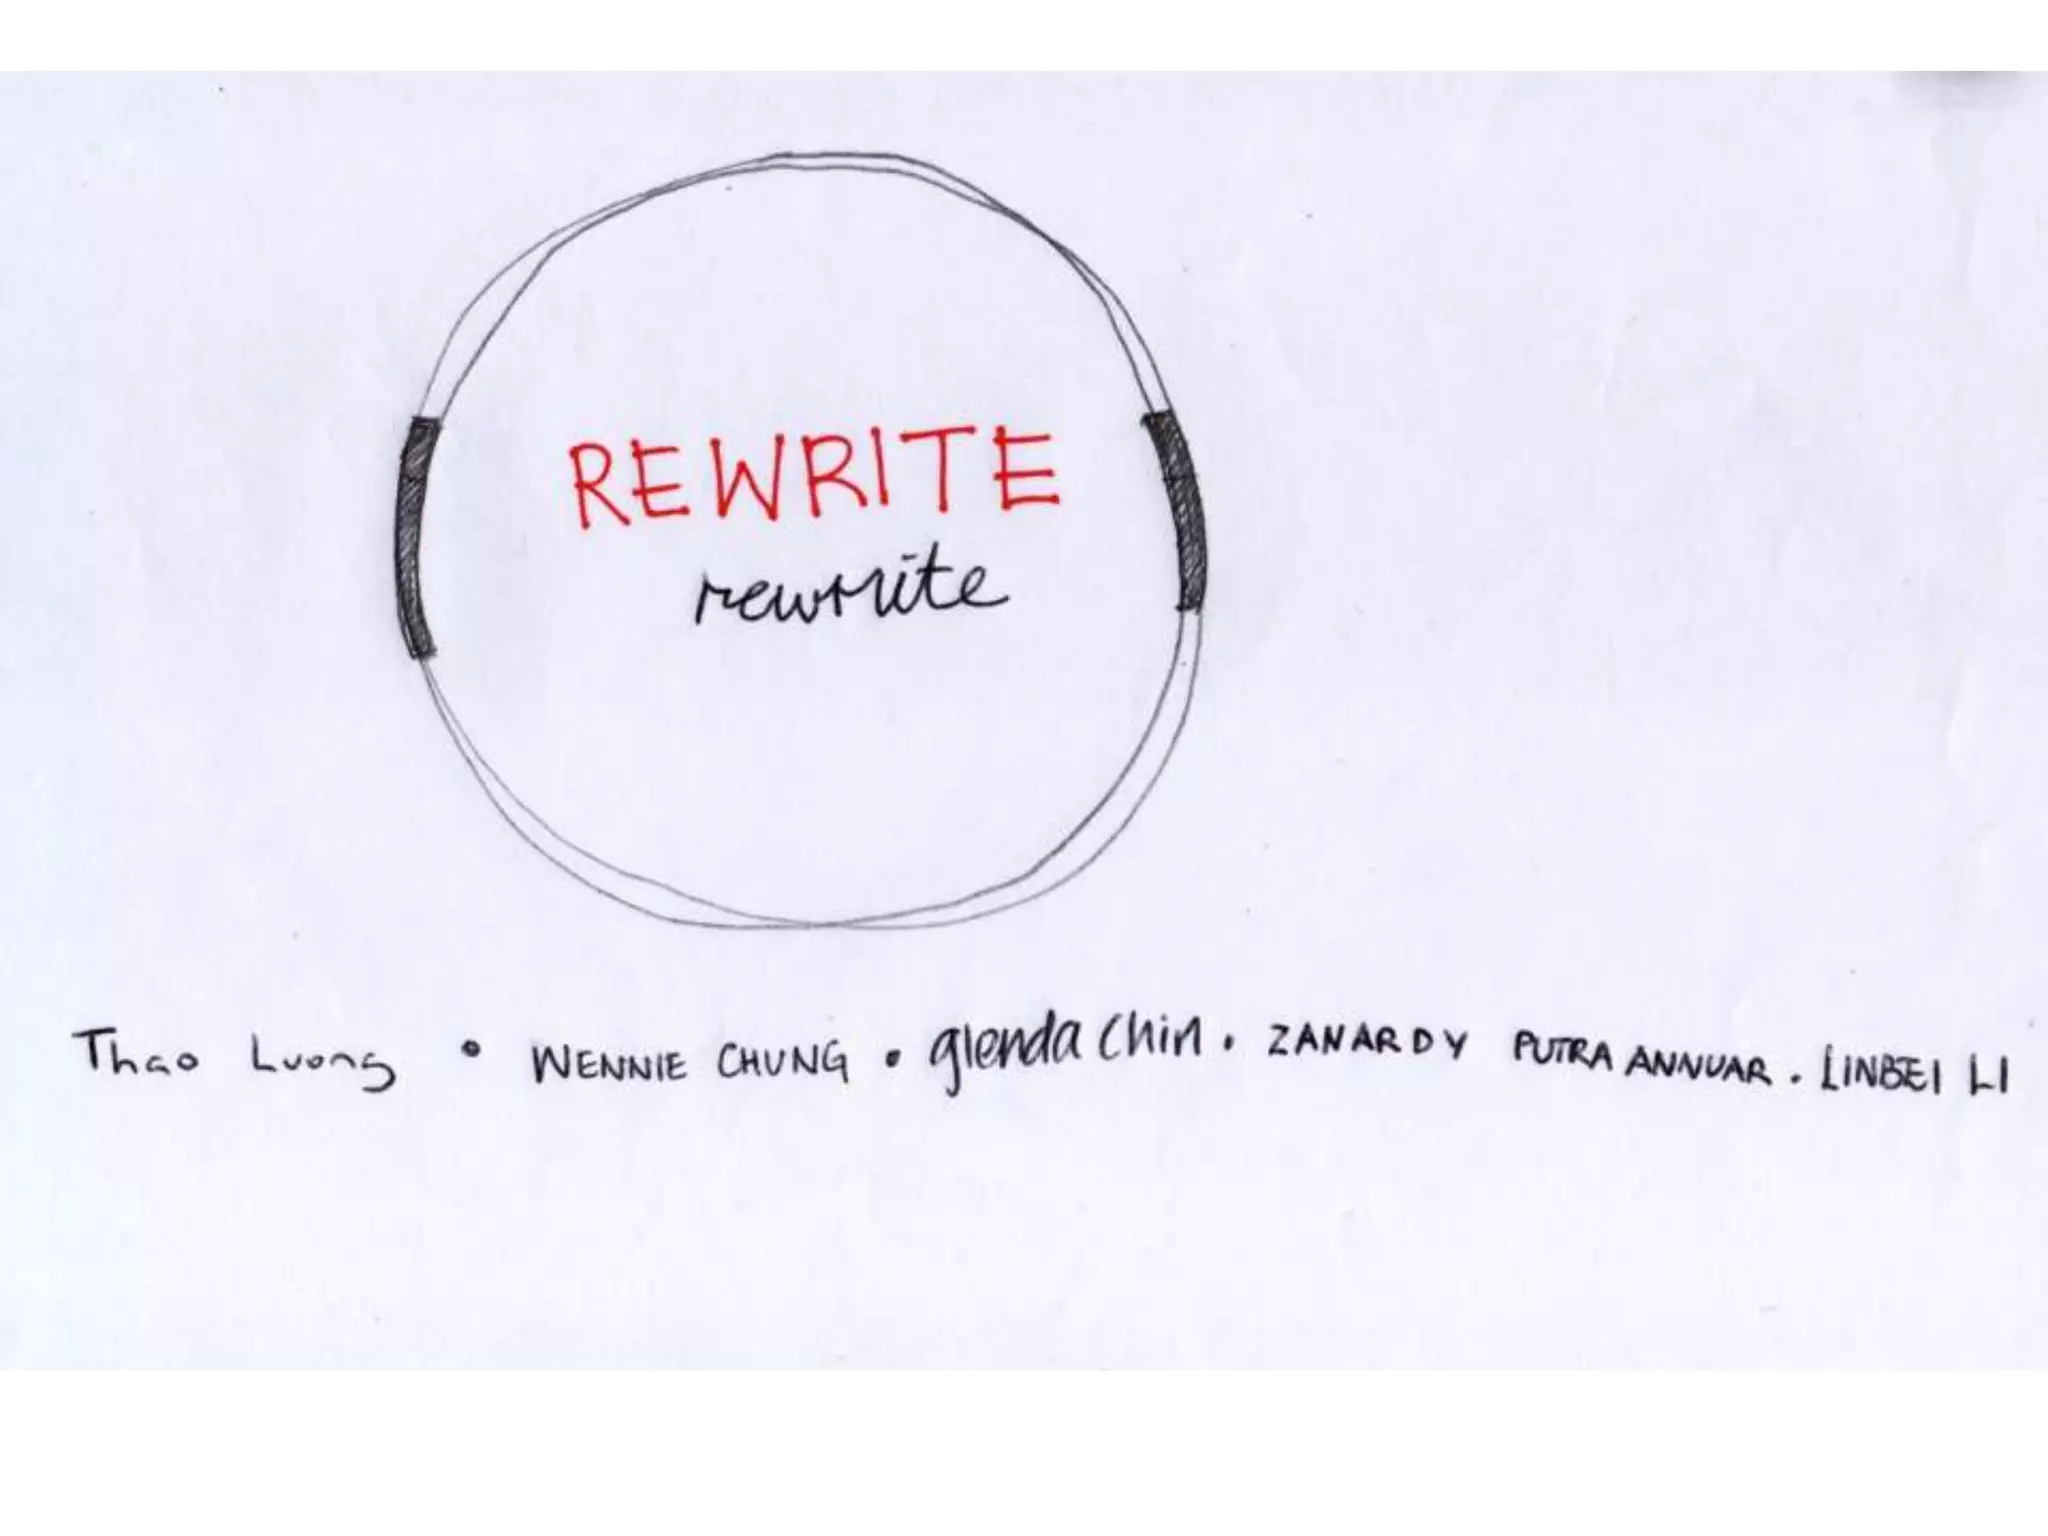 REWRITE
rewrite
Thao Luong • WENNIE CHUNG • glenda chin • ZANARDY PUTRA ANNUAR • LINBEI LI